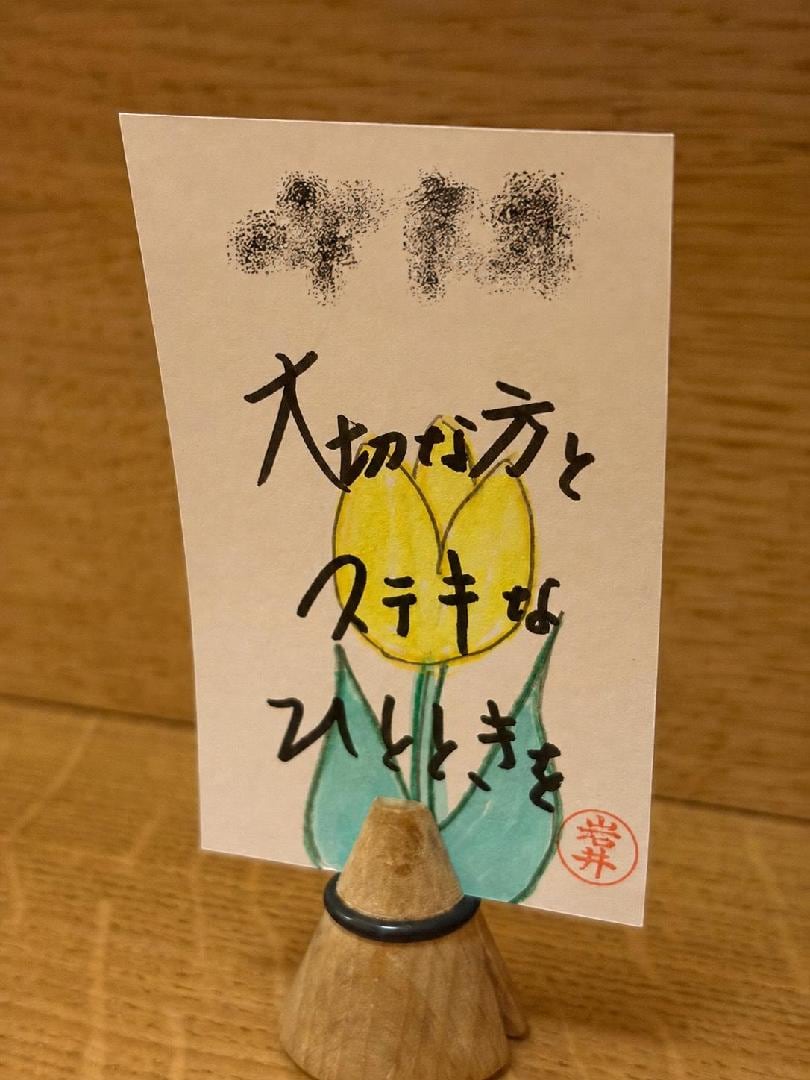 大切な方と
ステキな
ひとときを
岩井